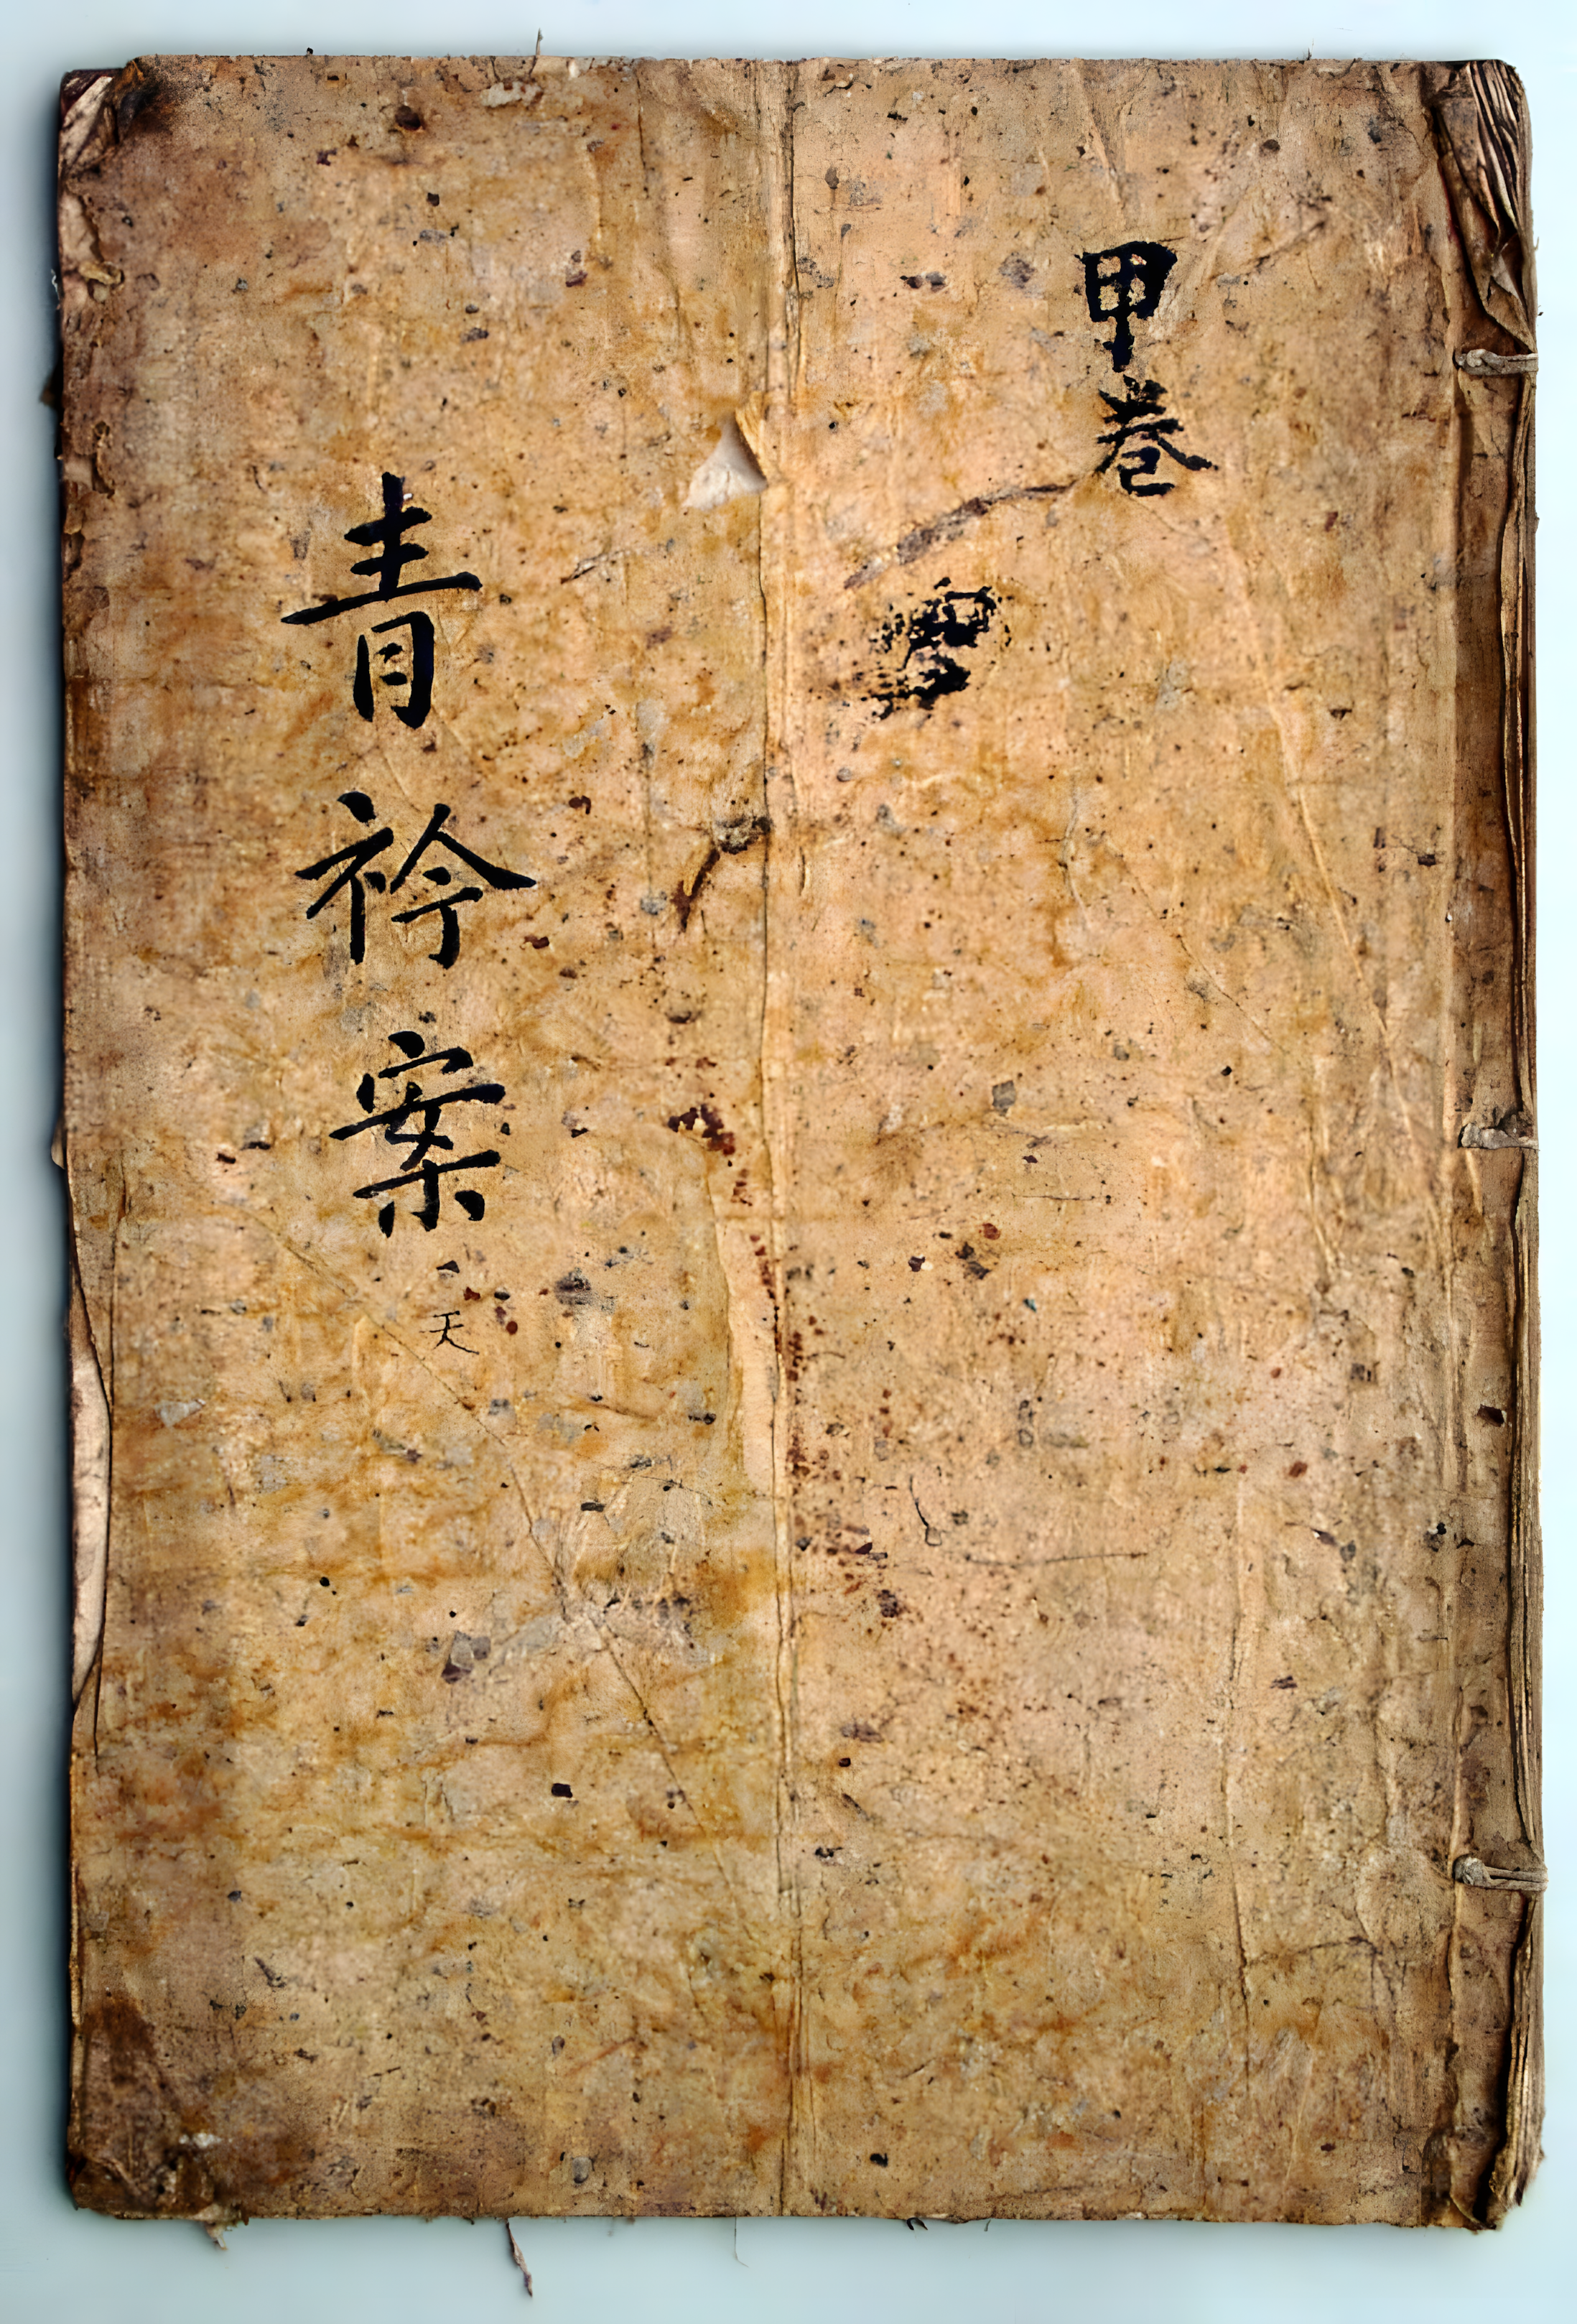 甲卷
青衿案
天